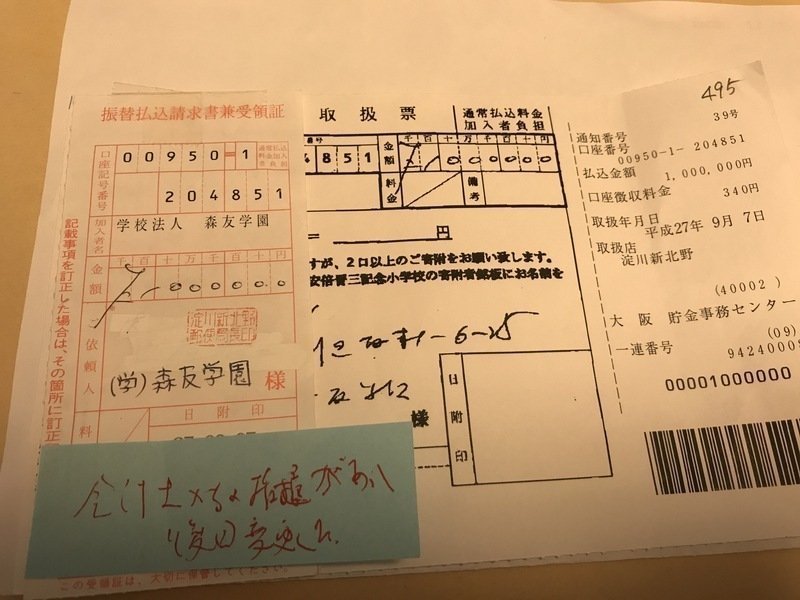 振替払込請求書兼受領証
口座記号番号
00950=1
通常払込料金加入者負担
204851
加入者名
学校法人 森友学園
金額
千百十万千百十円
1000000
ご依頼人
淀川新北野郵便局長印
(学)森友学園 様
料
日附印
記載事項を訂正した場合は、その箇所に訂正
会計士
指摘があり
後日変更した
この受領証は、大切に保管してください。
取扱票
通常払込料金加入者負担
番号
4851
金額
千百十万千百十円
1000000
料金
備考
円
すが、2口以上のご寄附をお願い致します。
安倍晋三記念小学校の寄附者銘板にお名前を
-6-25
様
日附印
495
39号
通知番号
口座番号
00950-1- 204851
払込金額
1,000,000円
口座徴収料金
340円
取扱年月日
平成27年 9月 7日
取扱店
淀川新北野
(40002)
大阪 貯金事務センター
(09)
一連番号
9424000
00001000000